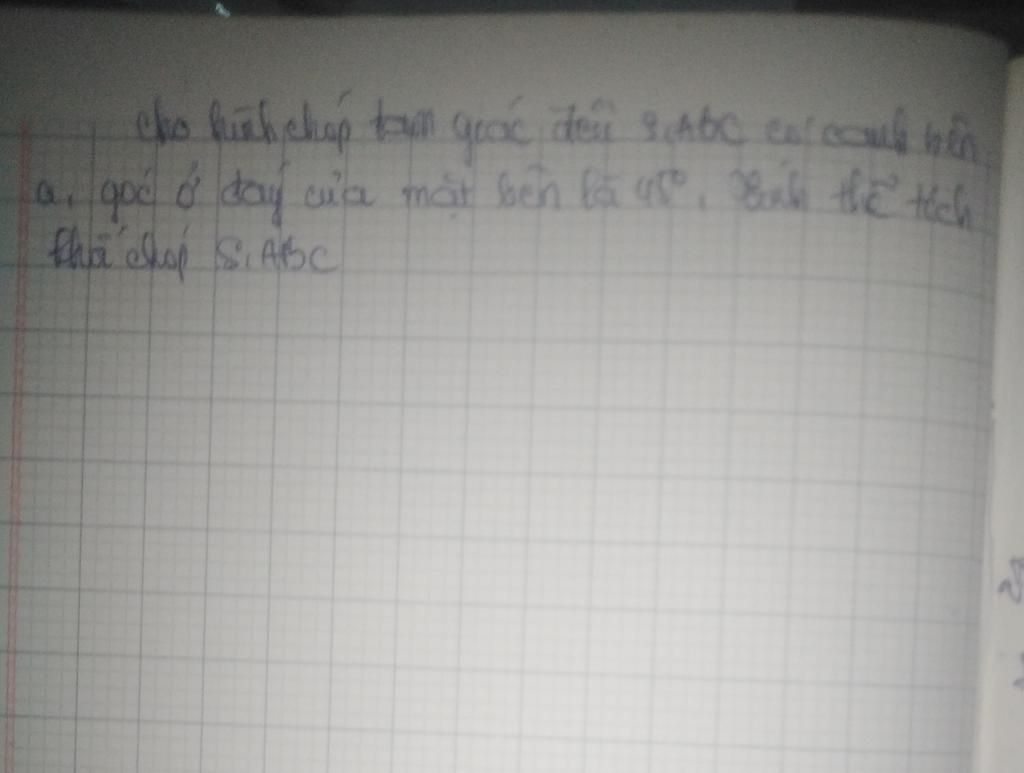 cho hình chóp tam giác đều S.ABC có cạnh bên
a, góc ở đáy của mặt bên là 45°. Tính thể tích
khối chóp S.ABC